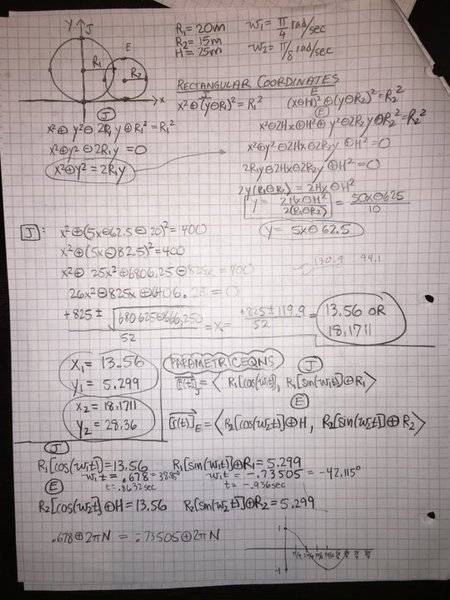 Y J
R₁ = 20m W₁ = π/4 rad/sec
R₂ = 15m W₂ = π/8 rad/sec
H = 25m
E
R₁
R₂
x
RECTANGULAR COORDINATES
J
x²⊕(y⊖R₁)² = R₁²
E
(x⊖H)²⊕(y⊖R₂)² = R₂²
J
x²⊕y²⊖2R₁y⊕R₁² = R₁²
x²⊕y²⊖2R₁y = 0
x²⊕y² = 2R₁y
E
x²⊖2Hx⊕H²⊕y²⊖2R₂y⊕R₂² = R₂²
x²⊕y²⊖2Hx⊖2R₂y⊕H² = 0
2R₁y⊖2Hx⊖2R₂y⊕H² = 0
2y(R₁⊖R₂) = 2Hx⊖H²
y = 2Hx⊖H² / 2(R₁⊖R₂) = 50x⊖625 / 10
y = 5x⊖62.5
J: x²⊕(5x⊖62.5⊖20)² = 400
x²⊕(5x⊖82.5)² = 400
x²⊕25x²⊕6806.25⊖825x = 400
26x²⊖825x⊕6406.25 = 0
+825 ± √680625⊖666,250 / 52 = x₁ = +825 ± 119.9 / 52 = 13.56 OR 18.1711
x₁ = 13.56
y₁ = 5.299
x₂ = 18.1711
y₂ = 28.36
PARAMETRIC EQNS
J
[r(t)]J = ⟨R₁[cos(w₁t)], R₁[sin(w₁t)]⊕R₁⟩
E
[r(t)]E = ⟨R₂[cos(w₂t)]⊕H, R₂[sin(w₂t)]⊕R₂⟩
J
R₁[cos(w₁t)] = 13.56 R₁[sin(w₁t)]⊕R₁ = 5.299
w₁t = .678 = 38.85° w₁t = -.73505 = -42.115°
t = .8632 sec t = -.936 sec
E
R₂[cos(w₂t)]⊕H = 13.56 R₂[sin(w₂t)]⊕R₂ = 5.299
.678⊕2πN = -.73505⊕2πN
1
-1